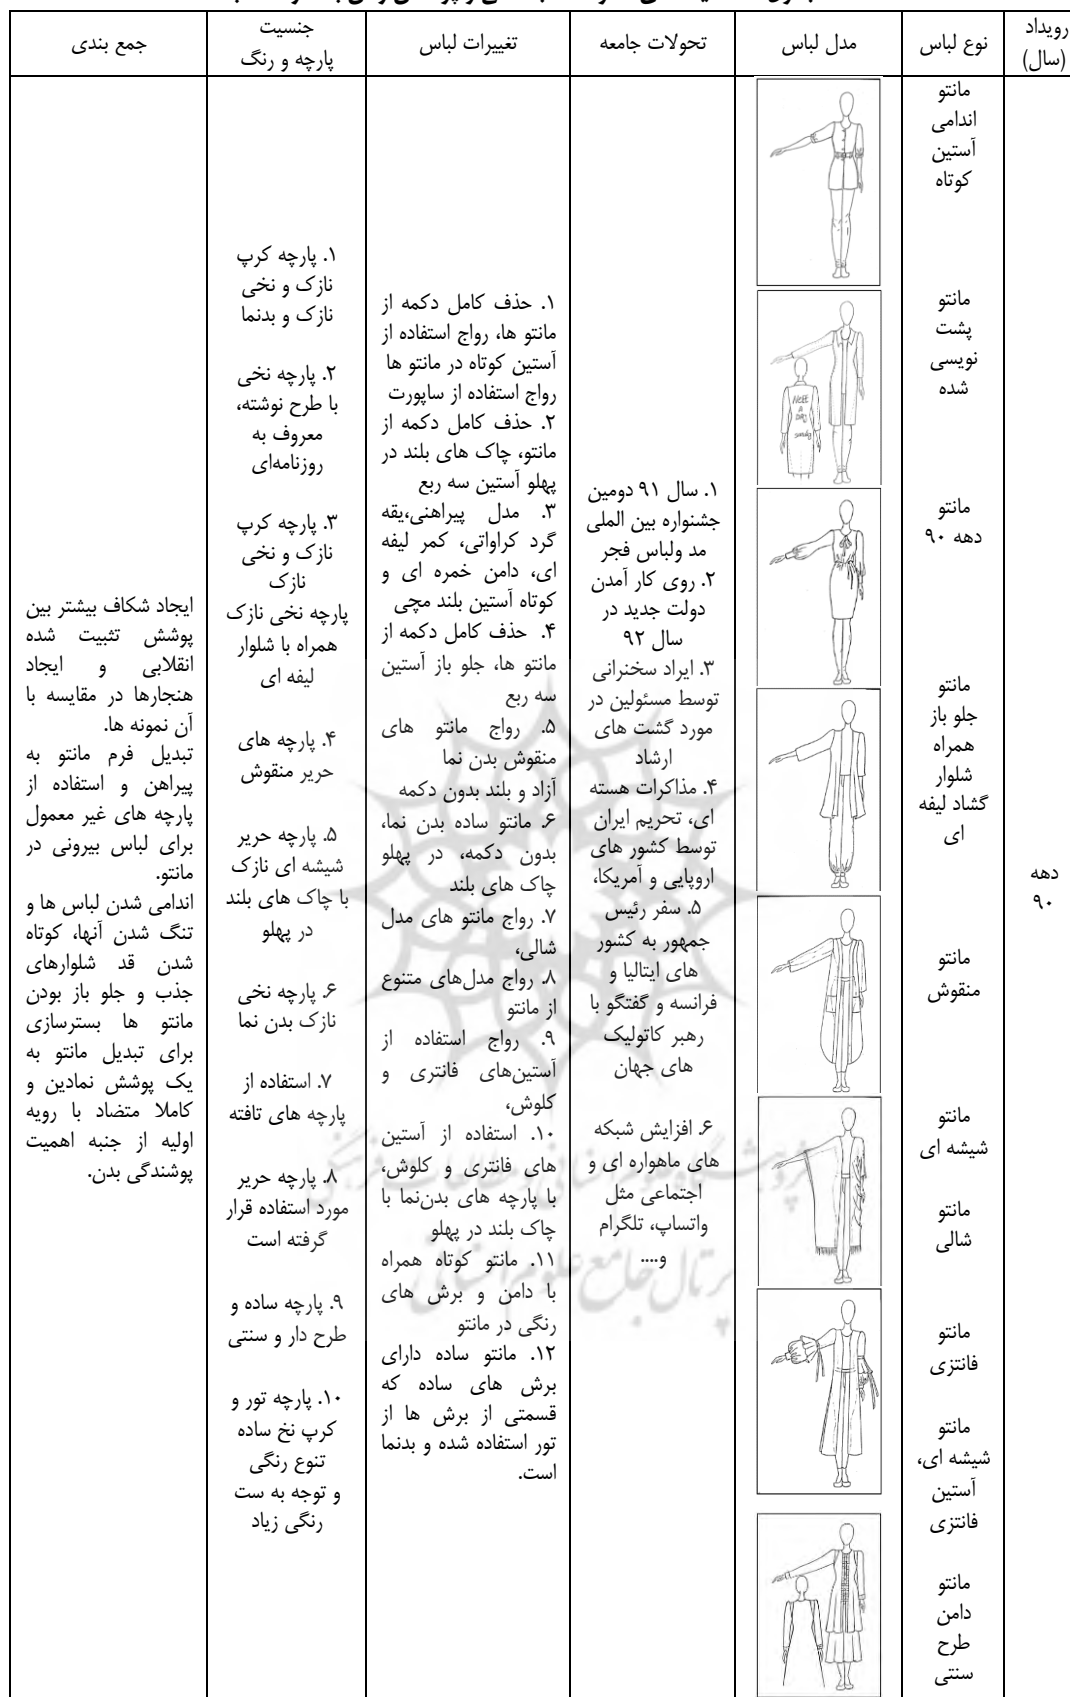 رویداد
(سال)
نوع لباس
مدل لباس
تحولات جامعه
تغییرات لباس
جنسیت
پارچه و رنگ
جمع بندی
دهه
۹۰
مانتو
اندامی
آستین
کوتاه
مانتو
پشت
نویسی
شده
مانتو
دهه ۹۰
مانتو
جلو باز
همراه
شلوار
گشاد لیفه
ای
مانتو
منقوش
مانتو
شیشه ای
مانتو
شالی
مانتو
فانتزی
مانتو
شیشه ای،
آستین
فانتزی
مانتو
دامن
طرح
سنتی
۱. سال ۹۱ دومین
جشنواره بین المللی
مد ولباس فجر
۲. روی کار آمدن
دولت جدید در
سال ۹۲
۳. ایراد سخنرانی
توسط مسئولین در
مورد گشت های
ارشاد
۴. مذاکرات هسته
ای، تحریم ایران
توسط کشور های
اروپایی و آمریکا،
۵. سفر رئیس
جمهور به کشور
های ایتالیا و
فرانسه و گفتگو با
رهبر کاتولیک
های جهان
۶. افزایش شبکه
های ماهواره ای و
اجتماعی مثل
واتساپ، تلگرام
و....
۱. حذف کامل دکمه از
مانتو ها، رواج استفاده از
آستین کوتاه در مانتو ها
رواج استفاده از ساپورت
۲. حذف کامل دکمه از
مانتو، چاک های بلند در
پهلو آستین سه ربع
۳. مدل پیراهنی،یقه
گرد کراواتی، کمر لیفه
ای، دامن خمره ای و
کوتاه آستین بلند مچی
۴. حذف کامل دکمه از
مانتو ها، جلو باز آستین
سه ربع
۵. رواج مانتو های
منقوش بدن نما
آزاد و بلند بدون دکمه
۶. مانتو ساده بدن نما،
بدون دکمه، در پهلو
چاک های بلند
۷. رواج مانتو های مدل
شالی،
۸. رواج مدل‌های متنوع
از مانتو
۹. رواج استفاده از
آستین‌های فانتری و
کلوش،
۱۰. استفاده از آستین
های فانتری و کلوش،
با پارچه های بدن‌نما با
چاک بلند در پهلو
۱۱. مانتو کوتاه همراه
با دامن و برش های
رنگی در مانتو
۱۲. مانتو ساده دارای
برش های ساده که
قسمتی از برش ها از
تور استفاده شده و بدنما
است.
۱. پارچه کرپ
نازک و نخی
نازک و بدنما
۲. پارچه نخی
با طرح نوشته،
معروف به
روزنامه‌ای
۳. پارچه کرپ
نازک و نخی
نازک
پارچه نخی نازک
همراه با شلوار
لیفه ای
۴. پارچه های
حریر منقوش
۵. پارچه حریر
شیشه ای نازک
با چاک های بلند
در پهلو
۶. پارچه نخی
نازک بدن نما
۷. استفاده از
پارچه های تافته
۸. پارچه حریر
مورد استفاده قرار
گرفته است
۹. پارچه ساده و
طرح دار و سنتی
۱۰. پارچه تور و
کرپ نخ ساده
تنوع رنگی
و توجه به ست
رنگی زیاد
ایجاد شکاف بیشتر بین
پوشش تثبیت شده
انقلابی و ایجاد
هنجارها در مقایسه با
آن نمونه ها.
تبدیل فرم مانتو به
پیراهن و استفاده از
پارچه های غیر معمول
برای لباس بیرونی در
مانتو.
اندامی شدن لباس ها و
تنگ شدن آنها، کوتاه
شدن قد شلوارهای
جذب و جلو باز بودن
مانتو ها بسترسازی
برای تبدیل مانتو به
یک پوشش نمادین و
کاملا متضاد با رویه
اولیه از جنبه اهمیت
پوشندگی بدن.
پرتال جامع علوم انسانی